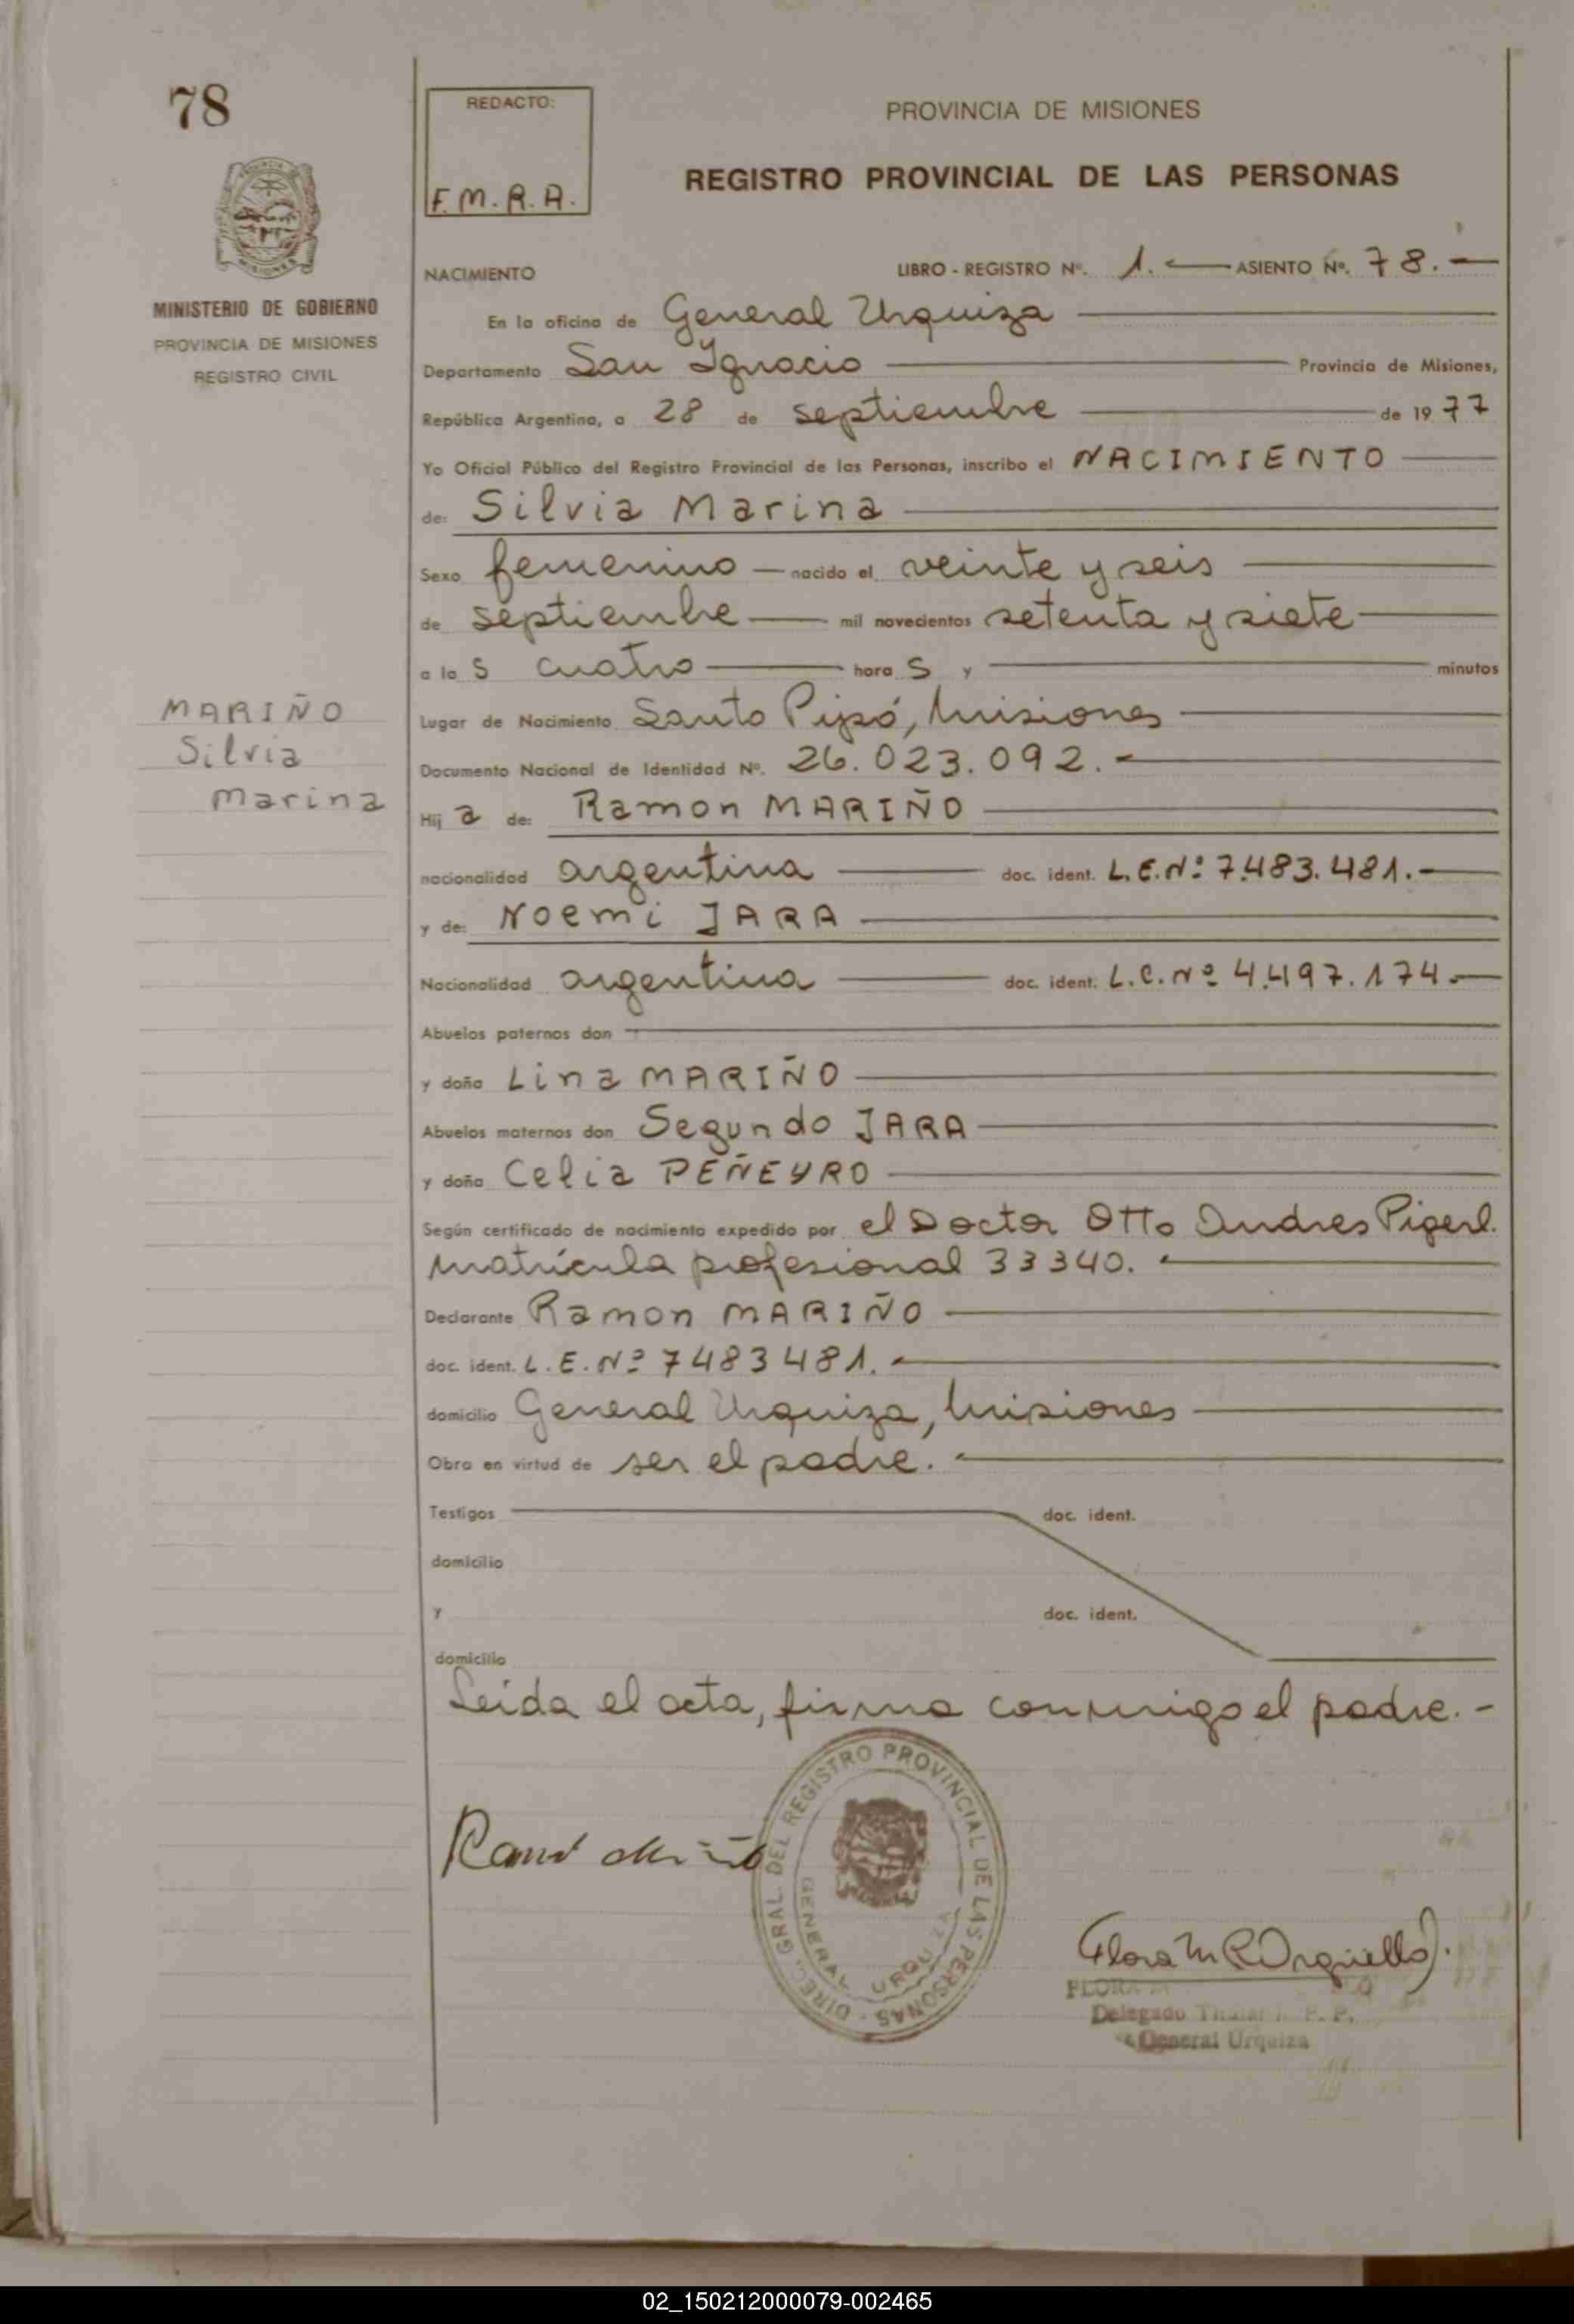 78
REDACTO:
F.M.R.A.
PROVINCIA DE MISIONES
REGISTRO PROVINCIAL DE LAS PERSONAS
MISIONES
MINISTERIO DE GOBIERNO
PROVINCIA DE MISIONES
REGISTRO CIVIL
NACIMIENTO LIBRO - REGISTRO Nº. 1. — ASIENTO Nº. 78. —
En la oficina de General Urquiza
Departamento San Ignacio Provincia de Misiones,
República Argentina, a 28 de septiembre de 1977
Yo Oficial Público del Registro Provincial de las Personas, inscribo el NACIMIENTO
de: Silvia Marina
Sexo femenino — nacido el veinte y seis
de septiembre — mil novecientos setenta y siete
a las cuatro — horas y — minutos
Lugar de Nacimiento Santo Pipó, Misiones
Documento Nacional de Identidad Nº. 26.023.092. -
Hija de: Ramon MARIÑO
nacionalidad argentina — doc. ident. L.E.Nº 7.483.481. -
y de: Noemi JARA
Nacionalidad argentina — doc. ident. L.C.Nº 4.497.174 -
Abuelos paternos don —
y doña Lina MARIÑO
Abuelos maternos don Segundo JARA
y doña Celia PEÑEYRO
Según certificado de nacimiento expedido por el Doctor Otto Andres Pigerl.
matrícula profesional 33340. -
Declarante Ramon MARIÑO
doc. ident. L.E.Nº 7483481. -
domicilio General Urquiza, Misiones
Obra en virtud de ser el padre. -
Testigos — doc. ident.
domicilio
y doc. ident.
domicilio
Leida el acta, firma conmigo el padre. -
MARIÑO
Silvia
Marina
DIREC. GRAL. DEL REGISTRO PROVINCIAL DE LAS PERSONAS -
GENERAL URQUIZA
Flora M R Argüello.
FLORA M
Delegado Titular
General Urquiza
02_150212000079-002465